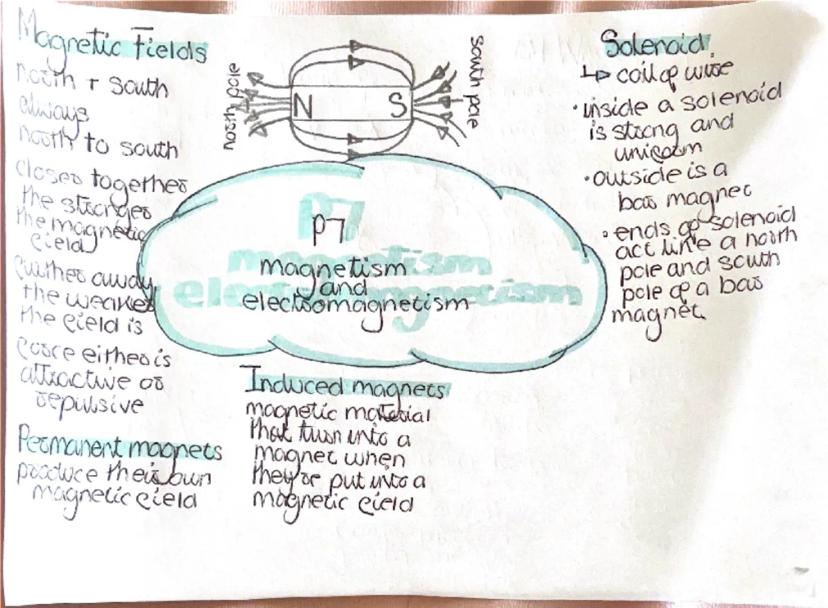 Magnetic Fields
north + south
always
north to south
closer together
the stronger
the magnetic
field
further away
the weaker
the field is
force either is
attractive or
repulsive
Permanent magnets
produce their own
magnetic field
north pole
N
S
south pole
P7
magnetism
electromagnetism
P7
magnetism
and
electromagnetism
Induced magnets
magnetic material
that turn into a
magnet when
they're put into a
magnetic field
Solenoid
↳ coil of wire
• inside a solenoid
is strong and
uniform
• outside is a
bar magnet
• ends of solenoid
act like a north
pole and south
pole of a bar
magnet